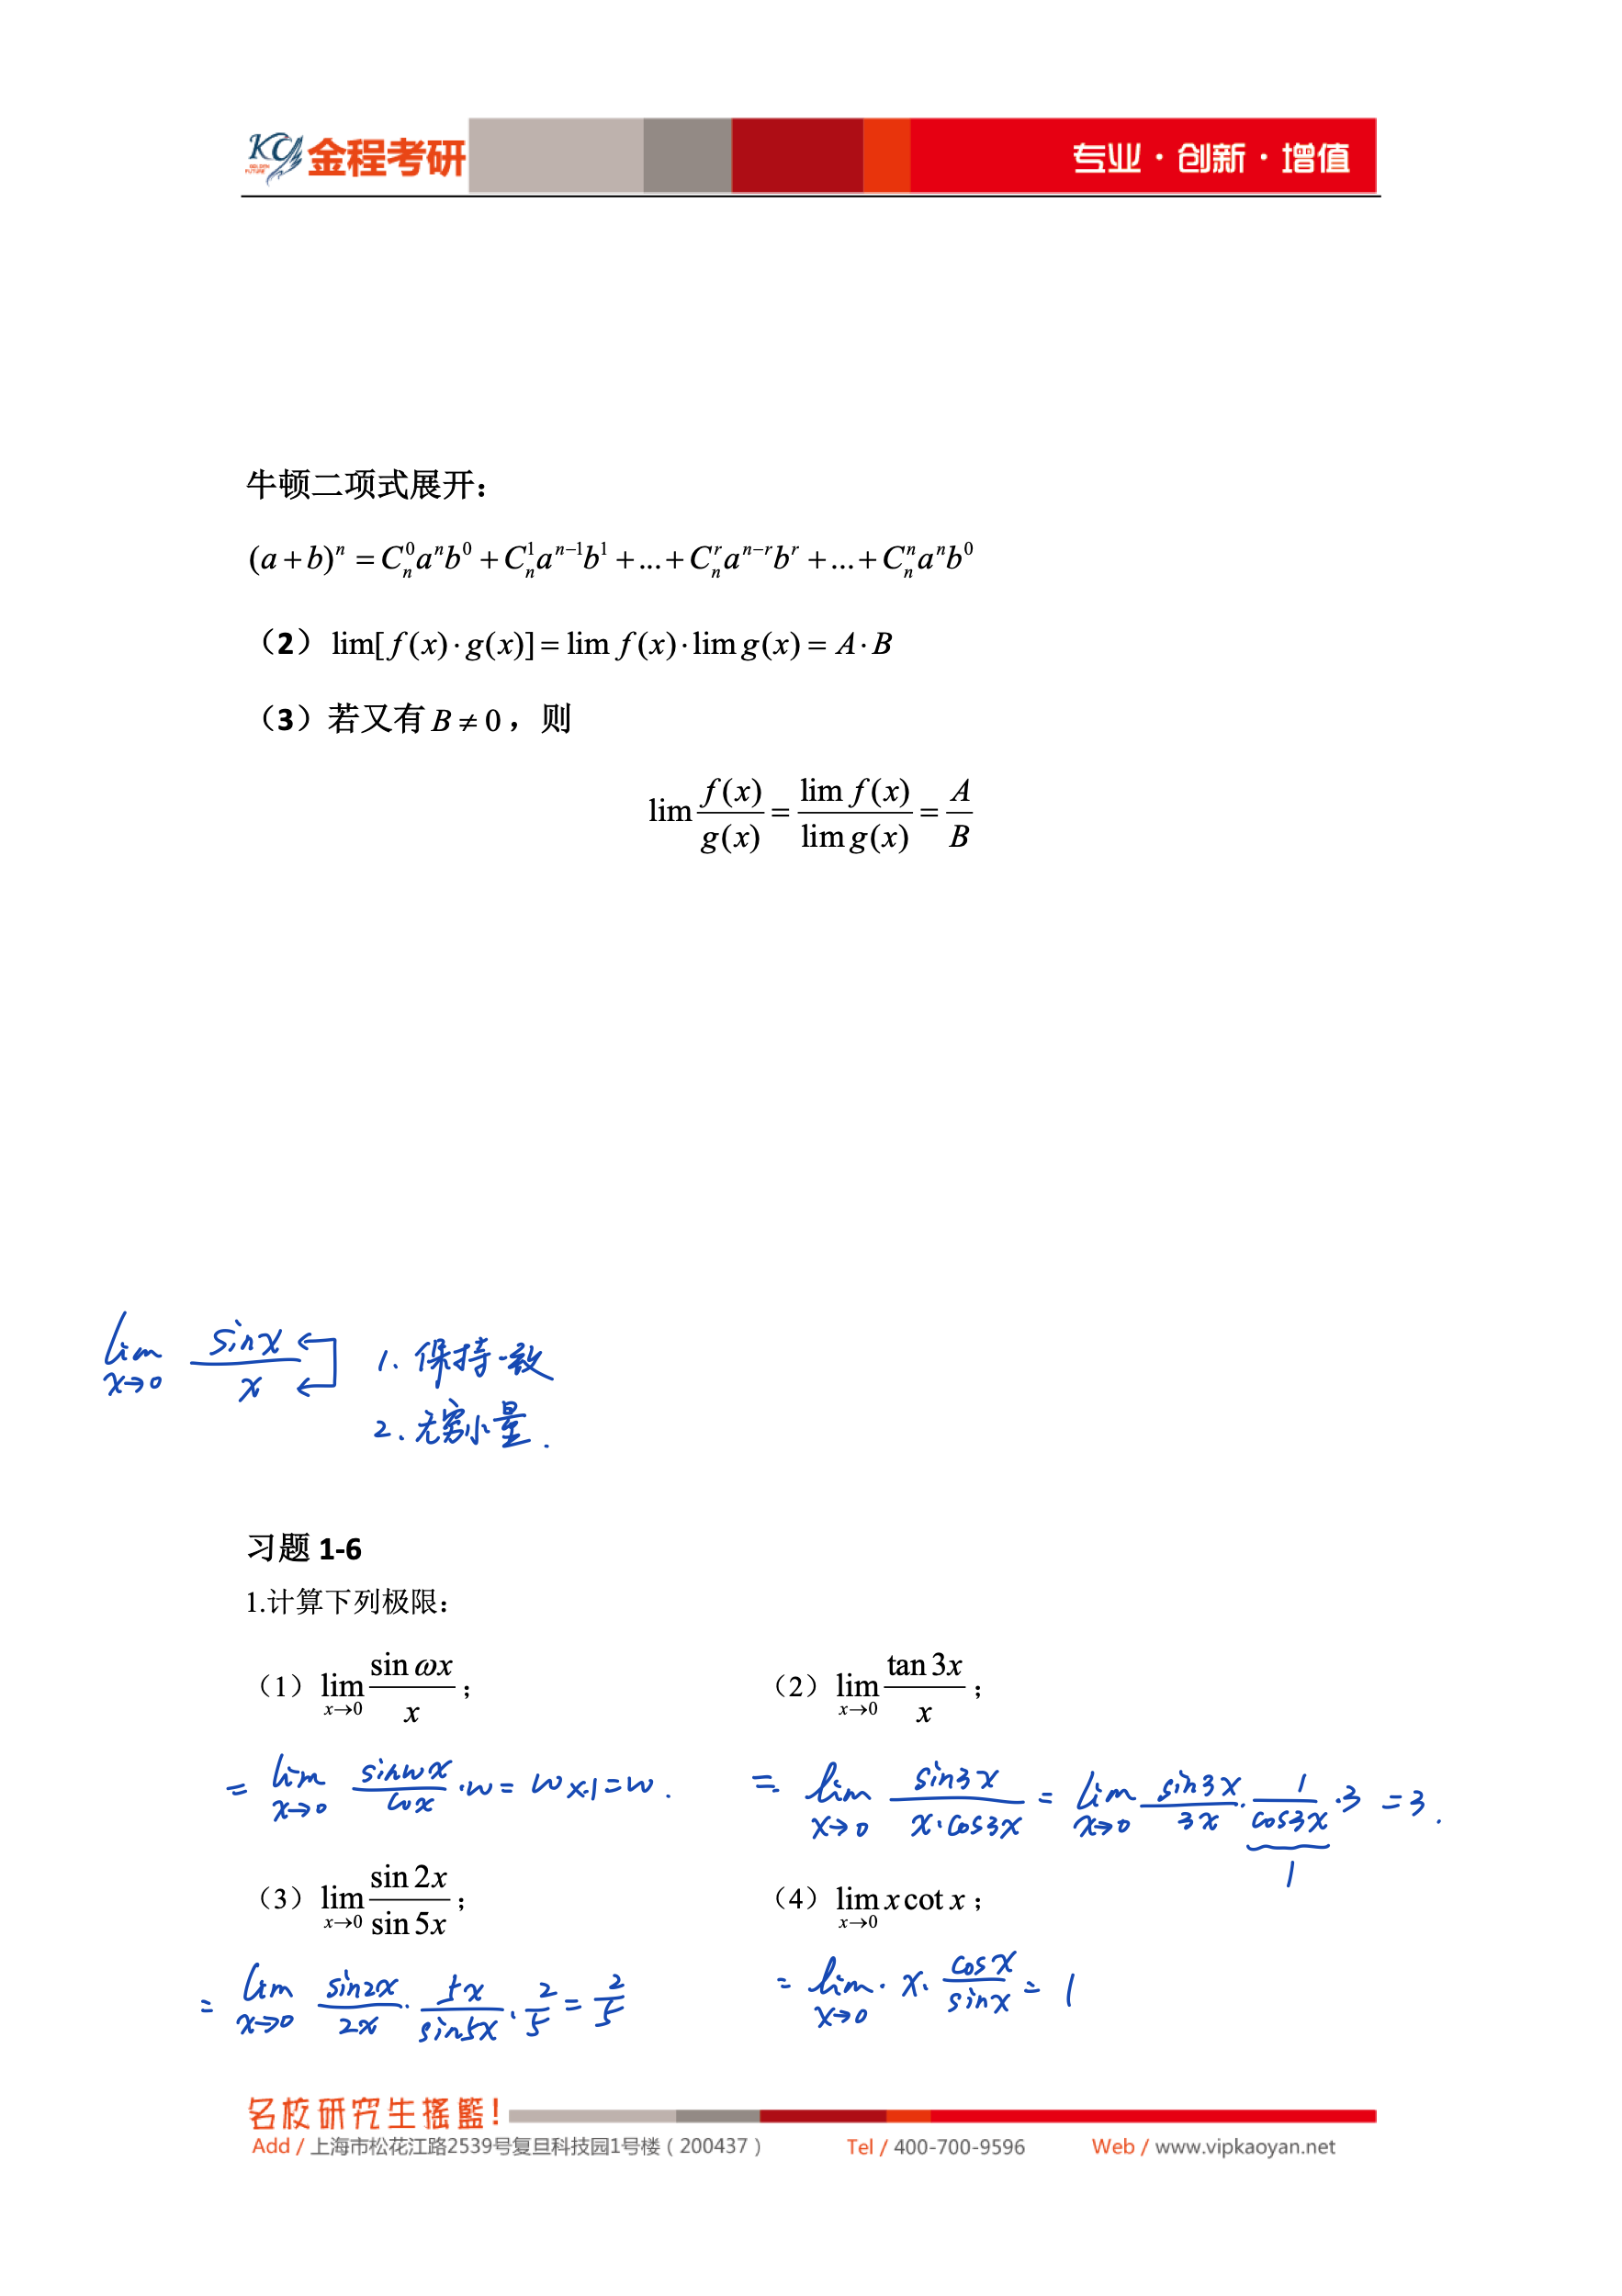 KC 金程考研 专业·创新·增值
GOLDEN FUTURE
牛顿二项式展开：
(a+b)^n = C_n^0 a^n b^0 + C_n^1 a^{n-1} b^1 + ... + C_n^r a^{n-r} b^r + ... + C_n^n a^n b^0
（2）lim[f(x)·g(x)] = lim f(x)·lim g(x) = A·B
（3）若又有 B ≠ 0，则
lim f(x)/g(x) = lim f(x)/lim g(x) = A/B
lim_{x→0} sinx/x 1. 保持一致
2. 无穷小量.
习题 1-6
1.计算下列极限：
（1）lim_{x→0} sin ωx/x； （2）lim_{x→0} tan 3x/x；
= lim_{x→0} sinωx/ωx ·ω = ω×1 = ω. = lim_{x→0} sin3x/(x·cos3x) = lim_{x→0} sin3x/3x · 1/cos3x ·3 = 3.
1
（3）lim_{x→0} sin 2x/sin 5x； （4）lim_{x→0} x cot x；
= lim_{x→0} sin2x/2x · 5x/sin5x · 2/5 = 2/5 = lim_{x→0} · x· cosx/sinx = 1
名校研究生摇篮!
Add / 上海市松花江路2539号复旦科技园1号楼（200437） Tel / 400-700-9596 Web / www.vipkaoyan.net